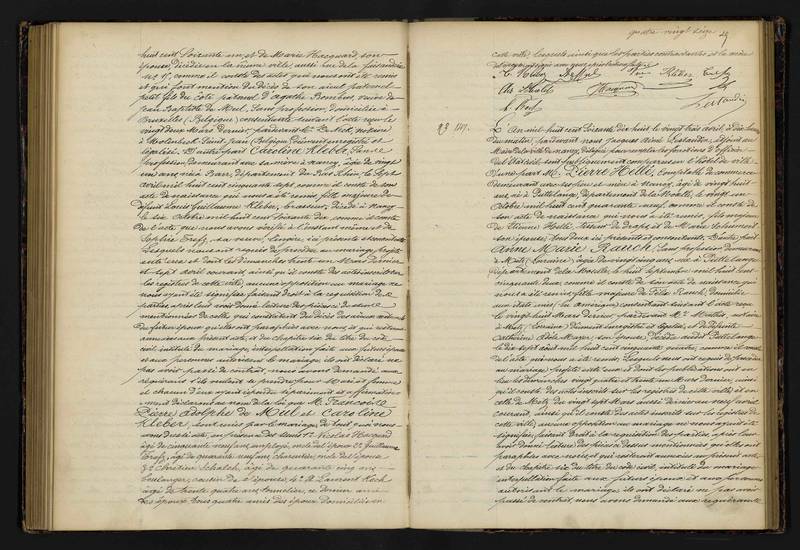 huit cent soixante un, et de Marie Hacquard, son
épouse, décédée en la même ville, aussi rue de la
n° 15, comme il conste des actes qui nous ont été remis
et qui font mention du décès de son aïeul paternel
petit fils du côté paternel d'Agathe veuve de
Jean Baptiste de Meul, sans profession, domiciliée à
Bruxelles (Belgique) consentante suivant l'acte reçu le
vingt deux Mars dernier, par devant Me De notaire
à Molenbeek Saint Jean (Belgique) dûment enregistré et
légalisé. D'autre part Caroline Kléber, sans
profession, demeurant avec sa mère à Nancy, âgée de vingt
un ans, née à Barr, département du Bas Rhin, le sept
avril mil huit cent cinquante sept, comme il conste de son
acte de naissance qui nous a été remis, fille majeure de
défunt Louis Guillaume Kléber, brasseur, décédé à Nancy
le six octobre mil huit cent soixante dix, comme il conste
de l'acte que nous avons vérifié à l'instant même et de
Sophie Trefz, sa veuve, ici présente et consentante
Lesquels nous ont requis de procéder au mariage projeté
entre eux et dont les dimanches trente un Mars dernier
et sept avril courant, ainsi qu'il conste des actes inscrits sur
les registres de cette ville, aucune opposition au mariage ne
nous ayant été signifiée, faisant droit à la réquisition des
parties, après leur avoir donné lecture des pièces ci-dessus
mentionnées de celles qui constatent du décès des aïeux
du futur époux qu'elles ont paraphées avec nous, et qui resteront
annexées au présent acte, et du chapitre six du titre du code
civil, intitulé du mariage, interpellation faite aux futurs époux
et aux personnes autorisant le mariage, ils ont déclaré ne
pas avoir passé de contrat, nous avons demandé aux
requérants s'ils veulent se prendre pour Mari et femme
et chacun d'eux ayant répondu séparément et affirmativement
nous déclarons au nom de la loi que M. François
Pierre Adolphe de Meul et Caroline
Kléber, sont unis par le mariage. De tout quoi nous
avons dressé acte, en présence des sieurs 1° Nicolas Hacquard
âgé de cinquante ans, employé, oncle de l'époux 2° Guillaume
Trefz, âgé de quarante ans, charcutier, oncle de l'épouse
3° Chrétien Schalck, âgé de quarante cinq ans
boulanger, cousin de l'épouse, 4° & Laurent Koch
âgé de trente quatre ans, tonnelier, ce dernier ami
des époux tous quatre amis des époux domiciliés en
quatre vingt seize
cette ville. Lesquels ainsi que les parties contractantes et la mère
de l'épouse ont signé avec nous après lecture faite
Kléber
Trefz
Chr Schalck
Hacquard
L. Koch
Lartaudin
93 M.
L'An mil huit cent soixante dix huit, le vingt trois avril, à dix heures
du matin, pardevant nous Jacques Aimé Lartaudin, adjoint au
Maire de la ville de Nancy, délégué pour remplir les fonctions d'officier
de l'état civil, sont publiquement comparus en l'hôtel de ville
D'une part M. Pierre Hellé, comptable de commerce
demeurant avec ses père et mère à Nancy, âgé de vingt huit
ans, né à Puttelange, département de la Moselle, le
octobre mil huit cent quarante neuf, comme il conste de
son acte de naissance qui nous a été remis, fils majeur
de Etienne Hellé, tisseur de draps, et de Marie
son épouse, tous deux ici présents et consentants. D'autre part
Anne Marie Rauch, sans profession, demeurant
à Metz (Lorraine) âgée de vingt cinq ans, née à Puttelange
département de la Moselle, le huit septembre mil huit cent
cinquante deux, comme il conste de son acte de naissance qui
nous a été remis, fille majeure de Félix Rauch, domicilié
aux états unis, en Amérique, consentant suivant l'acte reçu
le vingt huit Mars dernier, par devant Me notaire
à Metz (Lorraine) dûment enregistré et légalisé, et de défunte
Catherine Adèle Mayer, son épouse, décédée audit Puttelange
le dix sept août mil huit cent soixante quatre, comme il conste
de l'acte qui nous a été remis. Lesquels nous ont requis de procéder
au mariage projeté entre eux et dont les publications ont eu
lieu les dimanches vingt quatre et trente un Mars dernier, ainsi
qu'il conste des actes inscrits sur les registres de cette ville, et en
celle de Metz, les vingt sept Mars aussi dernier au neuf avril
courant, ainsi qu'il conste des actes inscrits sur les registres de
cette ville, aucune opposition au mariage ne nous ayant été
signifiée, faisant droit à la réquisition des parties, après leur
avoir donné lecture des pièces ci-dessus mentionnées qu'elles ont
paraphées avec nous, et qui resteront annexées au présent acte
et du chapitre six du titre du code civil, intitulé du mariage
interpellation faite aux futurs époux et aux personnes
autorisant le mariage, ils ont déclaré ne pas avoir
passé de contrat, nous avons demandé aux requérants